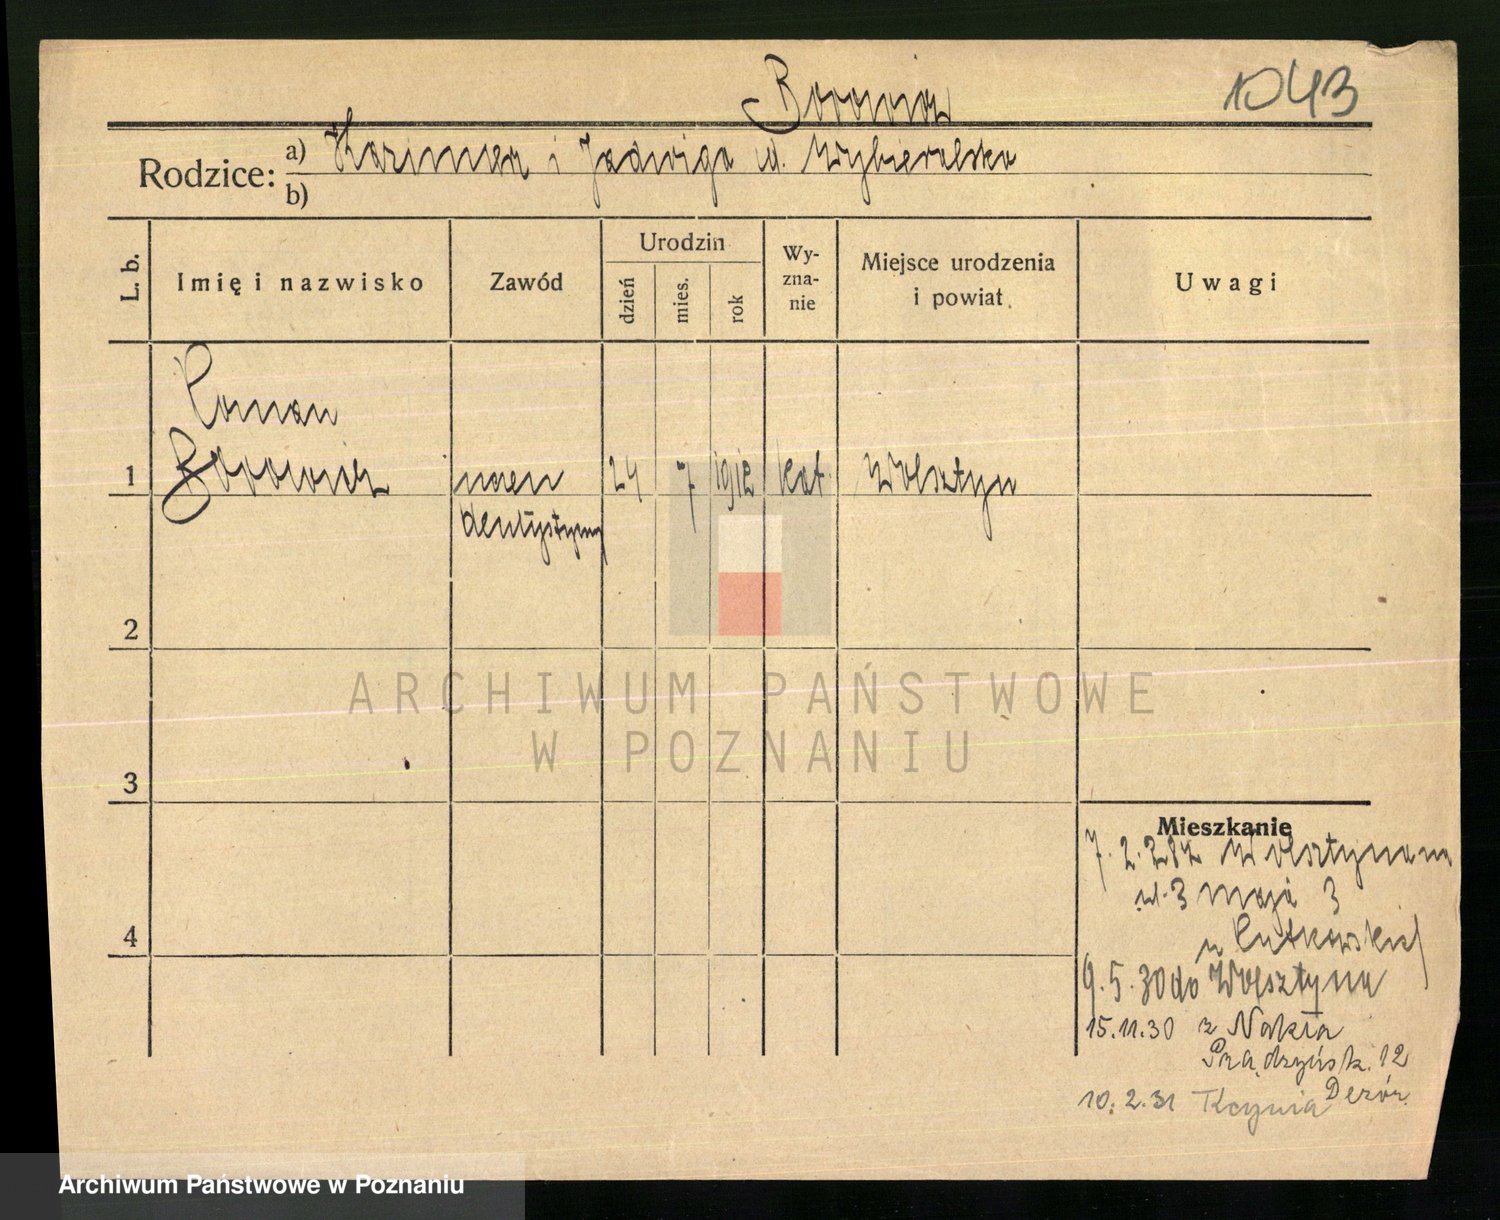 Borowicz
1043
Rodzice: a) Kazimierz i Jadwiga ur. Wybieralska
b)
L. b.
Imię i nazwisko
Zawód
Urodzin
dzień
mies.
rok
Wy-
zna-
nie
Miejsce urodzenia
i powiat
Uwagi
Roman
1 Borowicz uczeń 24 7 1912 kat Wolsztyn
dentystyczny
2
3
4
Mieszkanie
7. 2. z Wolsztyna na
ul. 3 maja 3
u Rutkowskich
9.5.30 do Wolsztyna
15.11.30 z Nakła
Prądzyńsk. 12
10.2.31 Kcynia
ARCHIWUM PAŃSTWOWE
W POZNANIU
Archiwum Państwowe w Poznaniu